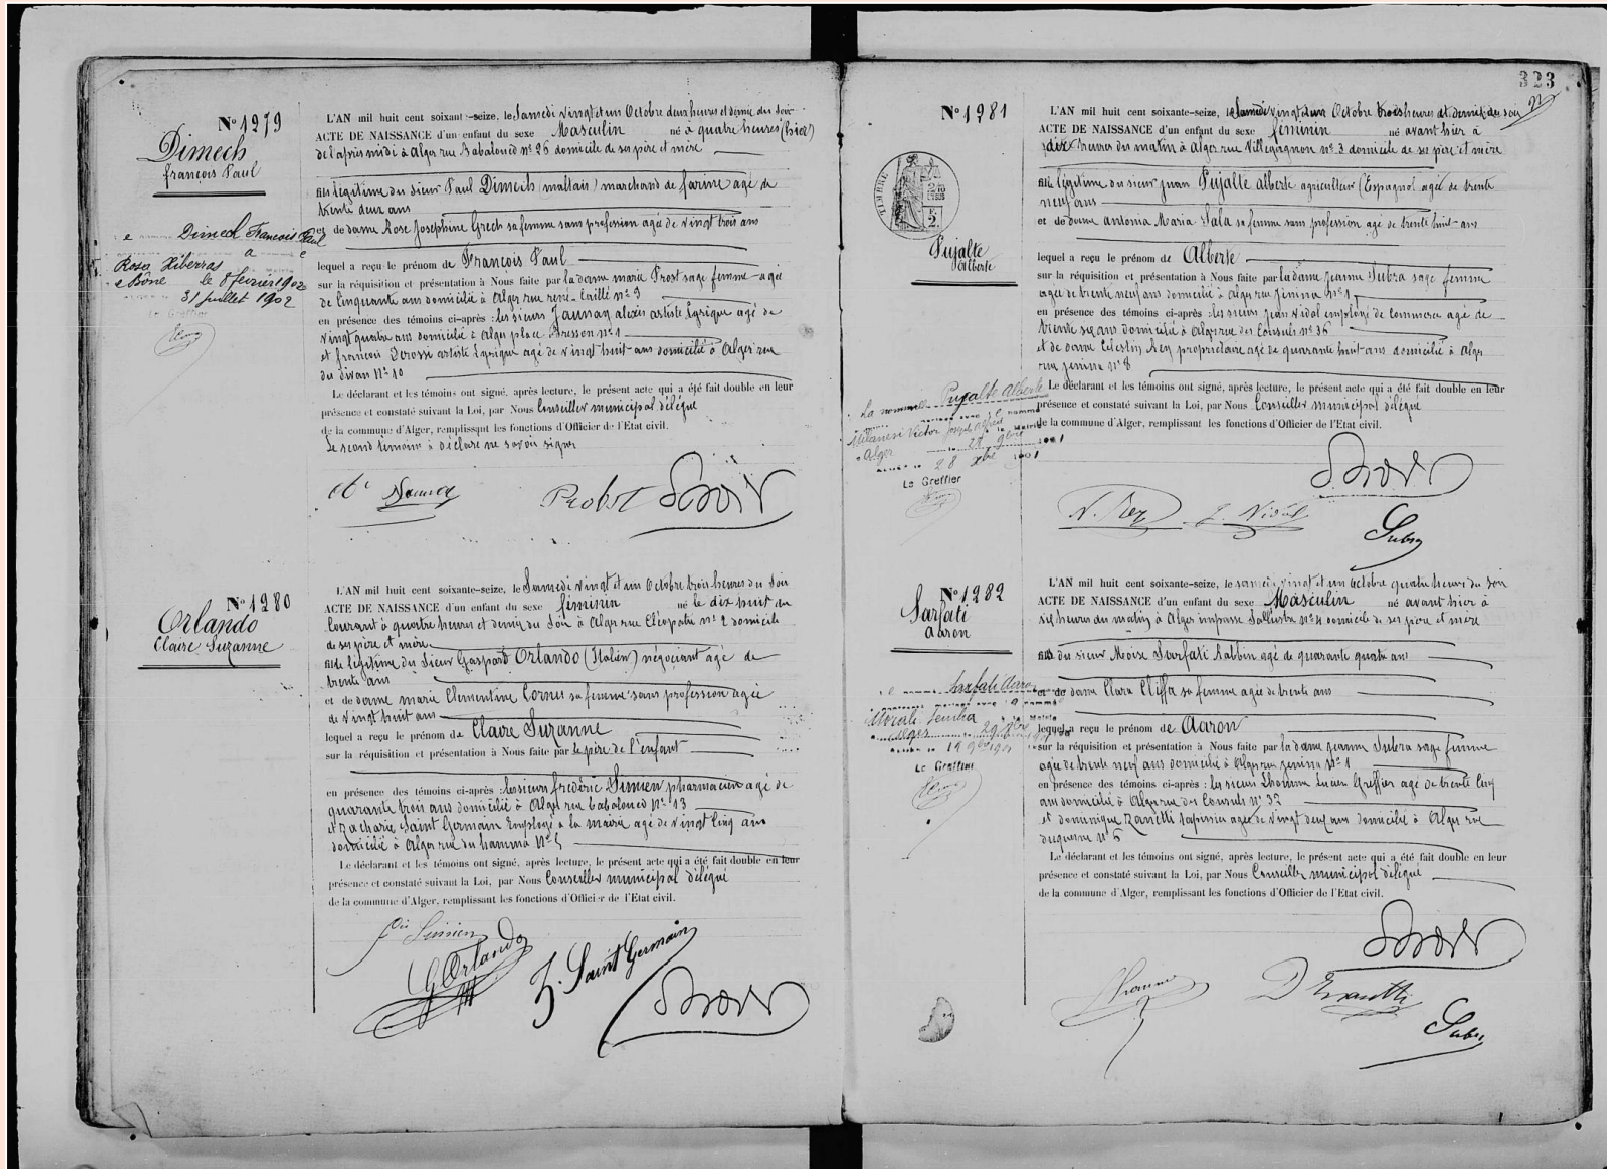 323
22
Nº 1279
Dimech
françois Paul
L'AN mil huit cent soixante-seize, le Samedi vingt et un Octobre deux heures et demie du soir
ACTE DE NAISSANCE d'un enfant du sexe Masculin né à quatre heures (hier)
de l'après midi à Alger rue Babaloued nº 26 domicile de ses père et mère
fils légitime du sieur Paul Dimech (maltais) marchand de farine agé de
trente deux ans
et de dame Rose Josephine Grech sa femme sans profession agée de vingt trois ans
lequel a reçu le prénom de François Paul
sur la réquisition et présentation à Nous faite par la dame marie Prost sage femme agée
de Cinquante ans domicilié à Alger rue rené Caillé nº 9
en présence des témoins ci-après : les sieurs Jaunay alexis artiste Lyrique agé de
vingt quatre ans domicilié à Alger place Bresson nº 1
et francois Derossi artiste Lyrique agé de vingt huit ans domicilié à Alger rue
du divan Nº 10
Le déclarant et les témoins ont signé, après lecture, le présent acte qui a été fait double en leur
présence et constaté suivant la Loi, par Nous Conseiller municipal délégué
de la commune d'Alger, remplissant les fonctions d'Officier de l'Etat civil.
Le second témoin à déclaré ne savoir signer
Probst
Dimech Francois Paul
a
Rose Xiberras
Bône le 8 février 1902
31 juillet 1902
Le Greffier
Nº 1280
Orlando
Claire Suzanne
L'AN mil huit cent soixante-seize, le Samedi vingt et un Octobre trois heures du Soir
ACTE DE NAISSANCE d'un enfant du sexe féminin né le dix huit du
Courant à quatre heures et demie du Soir à Alger rue Cléopatre nº 2 domicile
de ses père et mère
fille légitime du Sieur Gaspard Orlando (Italien) négociant agé de
trente ans
et de dame marie Clementine Cornus sa femme sans profession agée
de vingt huit ans
lequel a reçu le prénom de Claire Suzanne
sur la réquisition et présentation à Nous faite par le père de l'enfant
en présence des témoins ci-après : les sieurs frédéric Simien pharmacien agé de
quarante trois ans domicilié à Alger rue babaloued Nº 13
et Zacharie Saint Germain Employé a la mairie agé de vingt Cinq ans
domicilié à Alger rue du hamma Nº 5
Le déclarant et les témoins ont signé, après lecture, le présent acte qui a été fait double en leur
présence et constaté suivant la Loi, par Nous Conseiller municipal délégué
de la commune d'Alger, remplissant les fonctions d'Officier de l'Etat civil.
Simien
G Orlando
Z. Saint Germain
Nº 1281
TIMBRE
2
Pujalte
Alberte
L'AN mil huit cent soixante-seize, le Samedi vingt et un Octobre trois heures et demie du soir
ACTE DE NAISSANCE d'un enfant du sexe féminin né avant hier à
dix heures du matin à Alger rue Villegagnon nº 3 domicile de ses père et mère
fille légitime du sieur Juan Pujalte alberte agriculteur (Espagnol agé de trente
neuf ans
et de dame Antonia Maria Sala sa femme sans profession agé de trente huit ans
lequel a reçu le prénom de Alberte
sur la réquisition et présentation à Nous faite par la dame jeanne Subra sage femme
agée de trente neuf ans domicilié à Alger rue Jénina nº 4
en présence des témoins ci-après : les sieurs jean Vidal employé de commerce agé de
trente six ans domicilié à Alger rue des Consuls nº 36
et de dame Célestin Rey propriétaire agé de quarante huit ans domicilié à Alger
rue Jenina nº 8
Le déclarant et les témoins ont signé, après lecture, le présent acte qui a été fait double en leur
présence et constaté suivant la Loi, par Nous Conseiller municipal délégué
de la commune d'Alger, remplissant les fonctions d'Officier de l'Etat civil.
La nommée Pujalte Alberte
Victor Joseph
Alger
28 Xbre 1901
Le Greffier
Vidal
Subra
Nº 1282
Sarfati
aaron
L'AN mil huit cent soixante-seize, le samedi vingt et un Octobre quatre heures du Soir
ACTE DE NAISSANCE d'un enfant du sexe Masculin né avant hier à
six heures du matin à Alger impasse Salluste nº 4 domicile de ses père et mère
fils du sieur Moise Sarfati Rabbin agé de quarante quatre ans
et de dame Clara Cliffa sa femme agée de trente ans
lequel a reçu le prénom de Aaron
sur la réquisition et présentation à Nous faite par la dame jeanne Subra sage femme
agée de trente neuf ans domicilié à Alger rue jenina Nº 4
en présence des témoins ci-après : les sieurs Lhomme Lucien Greffier agé de trente Cinq
ans domicilié à Alger rue des Consuls nº 32
et dominique Zanetti tapissier agé de vingt deux ans domicilié à Alger rue
duquesne nº 6
Le déclarant et les témoins ont signé, après lecture, le présent acte qui a été fait double en leur
présence et constaté suivant la Loi, par Nous Conseiller municipal délégué
de la commune d'Alger, remplissant les fonctions d'Officier de l'Etat civil.
Sarfati Aaron
Alger
Le Greffier
Lhomme
D Zanetti
Subra